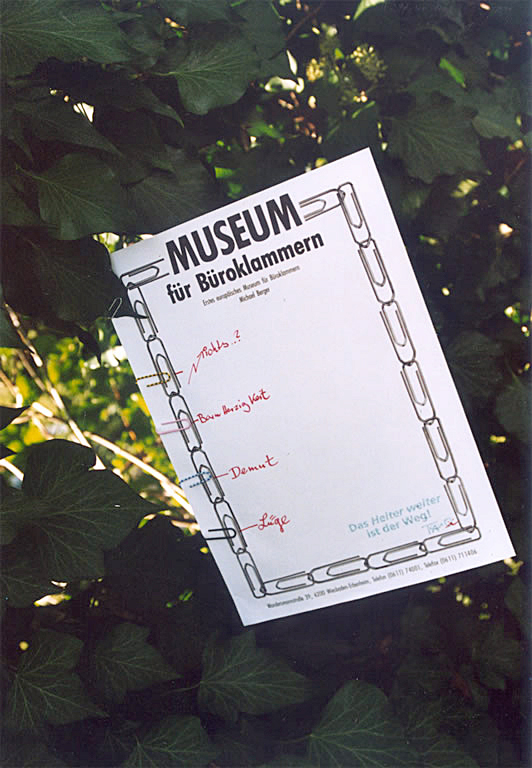 MUSEUM
für Büroklammern
Erstes europäisches Museum für Büroklammern
Michael Berger
nichts..?
Barmherzigkeit
Demut
Lüge
Das Heiter weiter
ist der Weg!
Wandersmannstraße 39, 6200 Wiesbaden-Erbenheim, Telefon (0611) 74001, Telefax (0611) 711406